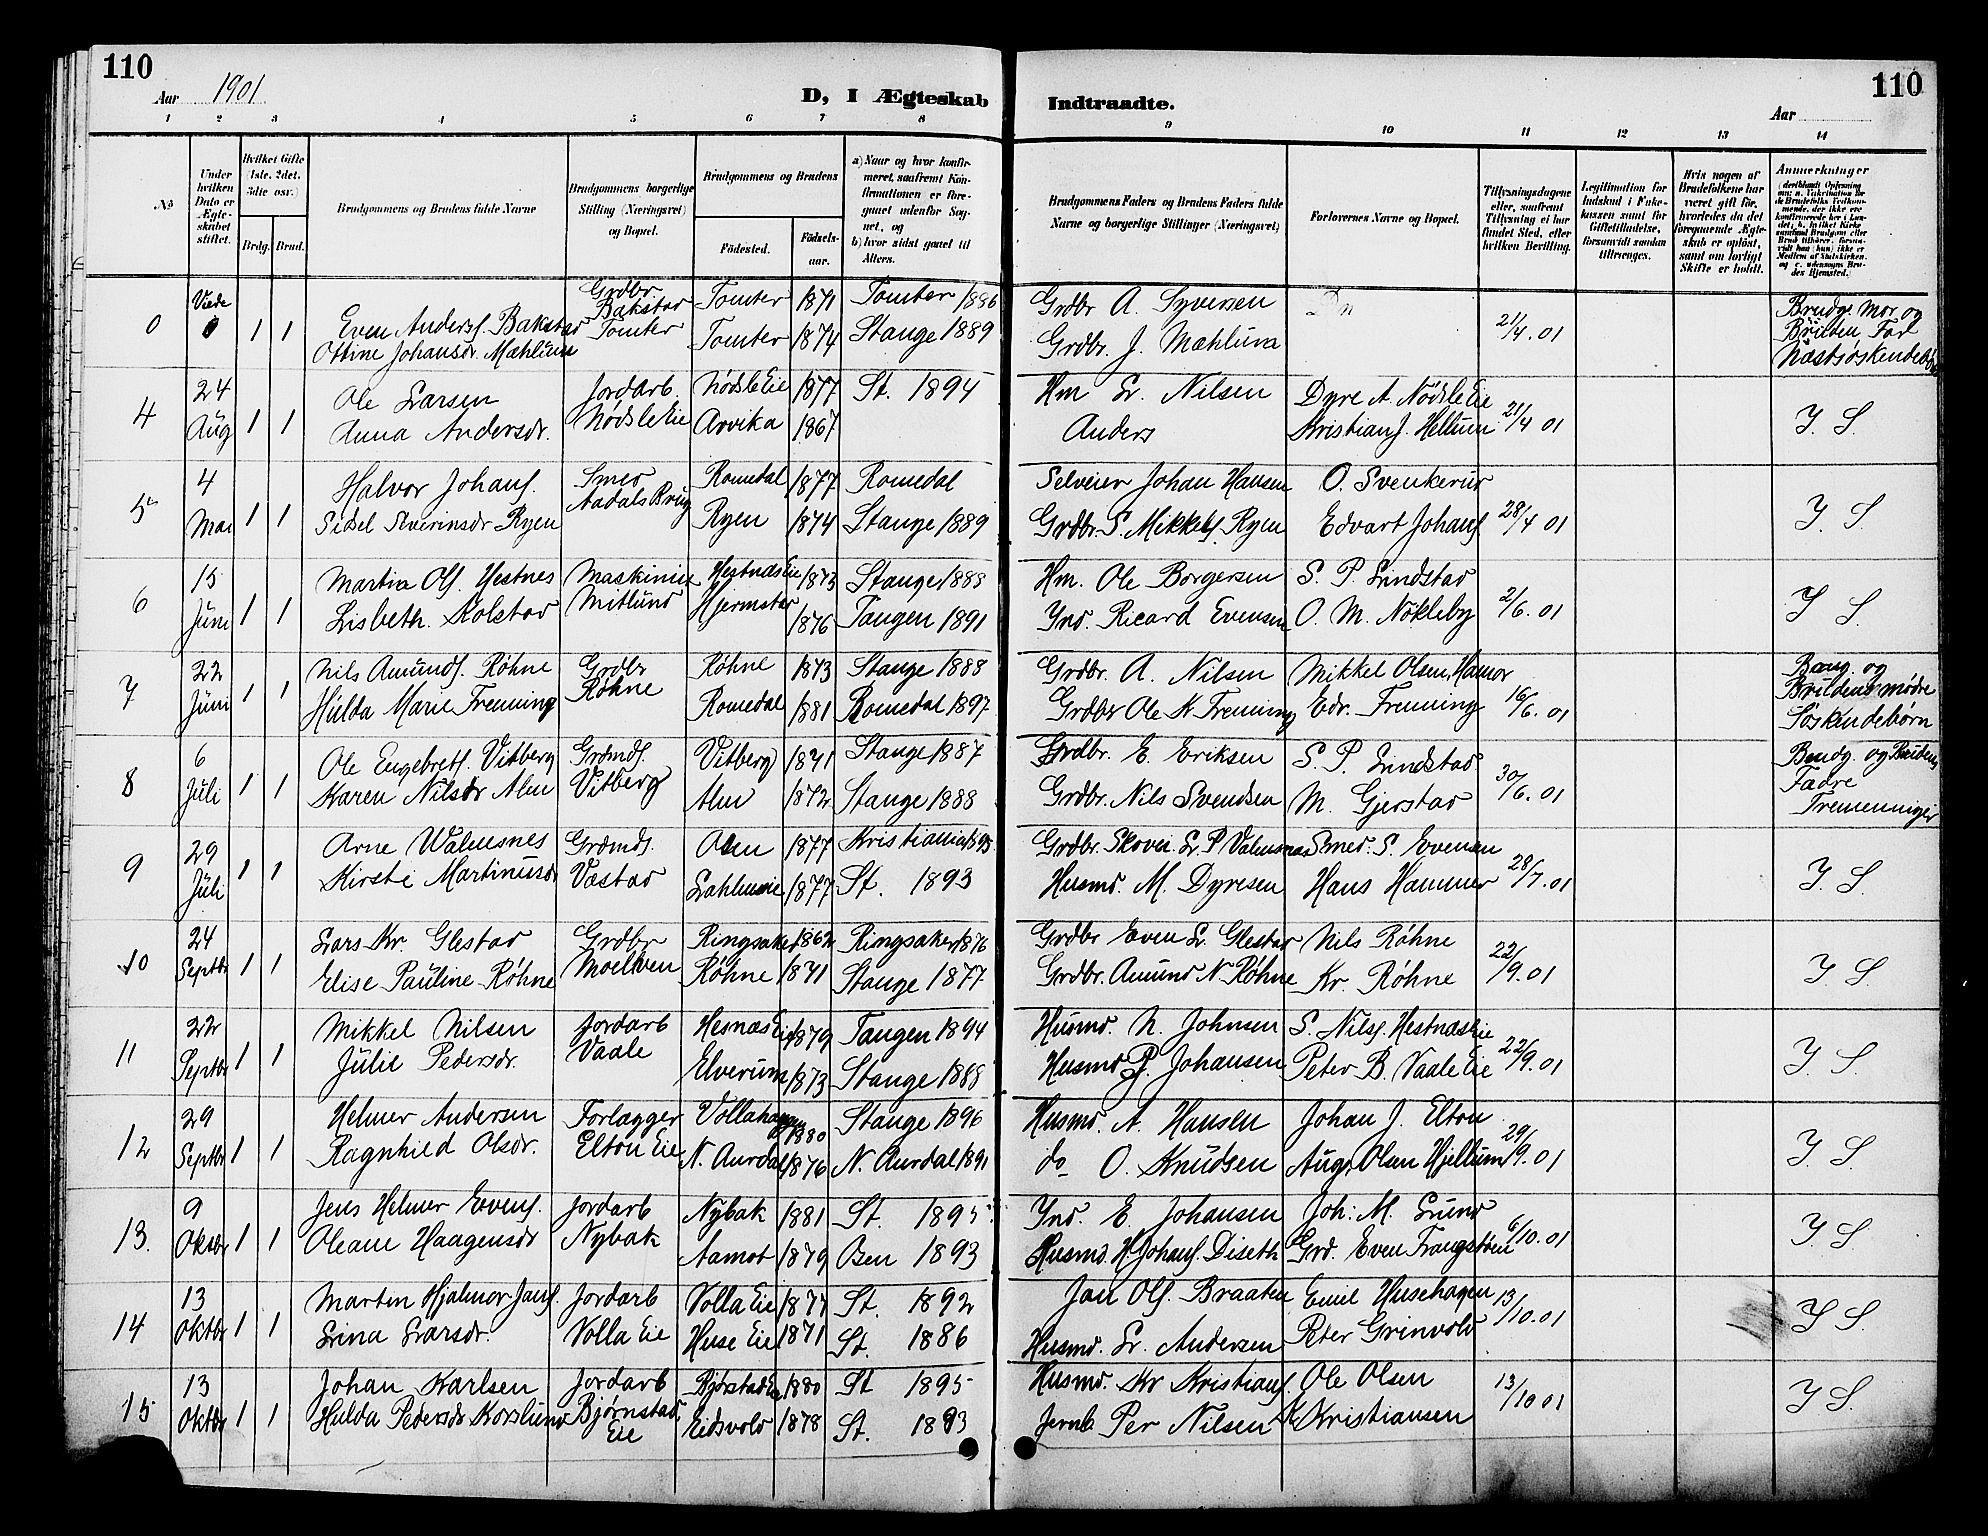 110
Aar 1901
D, I Ægteskab Indtraadte.
Aar
110
1 2 3 4 5 6 7 8 9 10 11 12 13 14
No
Under hvilken Dato er Ægteskabet stiftet.
Hvilket Gifte (1ste. 2det. 3die osv.)
Brdg. Brud.
Brudgommens og Brudens fulde Navne
Brudgommens borgerlige Stilling (Næringsvei) og Bopæl.
Brudgommens og Brudens
Fødested. Fødselsaar.
a) Naar og hvor konfirmeret, saafremt Konfirmationen er foregaaet udenfor Sognet, og
b) hvor sidst gaaet til Alters.
Brudgommens Faders og Brudens Faders fulde Navne og borgerlige Stillinger (Næringsvei)
Forlovernes Navne og Bopæl.
Tillysningsdagene eller, saafremt Tillysning ei har fundet Sted, efter hvilken Bevilling.
Legitimation for Indskud i Enkekassen samt for Giftetilladelse, forsaavidt saadan tiltrænges.
Hvis nogen af Brudefolkene har været gift før, hvorledes da det foregaaende Ægteskab er opløst, samt om lovligt Skifte er holdt.
Anmerkninger
0 Viede 0 1 1
Even Anders. Bakstad
Ottine Johansdr. Mæhlum
Grdbr Bakstad Tomter
Tomter 1871 Tomter 1886
Tomter 1874 Stange 1889
Grdbr A. Syversen
Grdbr. J. Mæhlum
21/4.01
Brudg. Mor og
Bruden Far
Næstsøskendebørn
4 24 Aug 1 1
Ole Larsen
Anna Andersdr.
Jordarb. Nødsle Eie
Nødsle Eie 1877 St. 1894
Arvika 1867
Hm L. Nilsen
Anders
Dyre A. Nødsle Eie
Kristian J. Hellum
21/4 01
I. S.
5 4 Mai 1 1
Halvor Johans.
Sidsel Severinsdr Ryen
Smed Aadals Brug
Romedal 1877 Romedal
Ryen 1874 Stange 1889
Selveier Johan Hansen
Grdbr. S. Mikkels. Ryen
O. Svenkerud
Edvart Johans.
28/4 01
I. S.
6 15 Juni 1 1
Martin Ols. Hestnes
Lisbeth Kolstad
Maskinist Mitlund
Hestnæs Eie 1873 Stange 1888
Hjermstad 1876 Tangen 1891
Hm. Ole Borgersen
Ind. Ricard Evensen
S. P. Lindstad
O. M. Nøkleby
2/6.01
I S.
7 22 Juni 1 1
Nils Amunds. Røhne
Hulda Marie Frenning
Grdbr Røhne
Røhne 1873 Stange 1888
Romedal 1881 Romedal 1897
Grdbr. A. Nilsen
Grdbr Ole K. Frenning
Mikkel Olsen, Hamar
Edv. Frenning
16/6.01
Brudg. og
Brudens mødre
Søskendebørn
8 6 Juli 1 1
Ole Engebrets. Vitberg
Karen Nilsdr Alm
Grdmds. Vitberg
Vitberg 1871 Stange 1887
Alm 1872 Stange 1888
Grdbr. E. Eriksen
Grdbr. Nils Svendsen
S. P. Lindstad
M. Gjerstad
30/6.01
Brudg. og Brudens
Fædre
Tremenninger
9 29 Juli 1 1
Arne Walmsnes
Kirsti Martinusdr
Grdmds. Væstad
Alm 1877 Kristiania 1893
Lahlum Eie 1877 St. 1893
Grdbr. Skovei. L. P. Valmsnæs
Husmd. M. Dyresen
Smed. S. Evensen
Hans Hammer
28/7.01
I. S.
10 24 Septbr 1 1
Lars Kr. Glestad
Elise Pauline Røhne
Grdbr Moelven
Ringsaker 1862 Ringsaker 1876
Røhne 1871 Stange 1877
Grdbr Even L. Glestad
Grdbr. Amund N. Røhne
Nils Røhne
Kr. Røhne
22/9.01
I S.
11 22 Septbr 1 1
Mikkel Nilsen
Julie Pedersdr.
Jordarb Vaale
Hesnæs Eie 1879 Tangen 1894
Elverum 1873 Stange 1888
Husmd. N. Johnsen
Husmd P. Johansen
S. Nils. Hestnæs Eie
Peter B. Vaale Eie
22/9.01
I S.
12 29 Septbr 1 1
Helmer Andersen
Ragnhild Olsdr.
Forlægger Elton Eie
Vollahagen 1880 Stange 1896
N. Aurdal 1876 N. Aurdal 1891
Husmd. A. Hansen
do O. Knudsen
Johan J. Elton
Aug. Olsen Hjellum
29/9.01
I. S.
13. 9 Oktbr 1 1
Jens Helmer Evens.
Oleane Haagensdr
Jordarb Nybak
Nybak 1881 St. 1895
Aamot 1879 Ben 1893
Ind. E. Johansen
Husmd. H. Johans. Diseth
Joh: M. Lund
Grd. Even Frangstøen
6/10.01
I S.
14 13 Oktbr 1 1
Marten Hjalmar Jans.
Lina Larsdr.
Jordarb Volla Eie
Volla Eie 1877 St. 1892
Huse Eie 1871 St. 1886
Jan Ols. Braaten
Husmd. L. Andersen
Emil Husehagen
Peter Grinvold
13/10.01
I S.
15 13 Oktbr 1 1
Johan Karlsen
Hulda Pedersdr Korslund
Jordarb Bjørnstad Eie
Bjørstad Eie 1880 St 1895
Eidsvold 1878 St. 1893
Husmd. Kr Kristians.
Jernb. Per Nilsen
Ole Olsen
K. Kristiansen
13/10 01
I S.